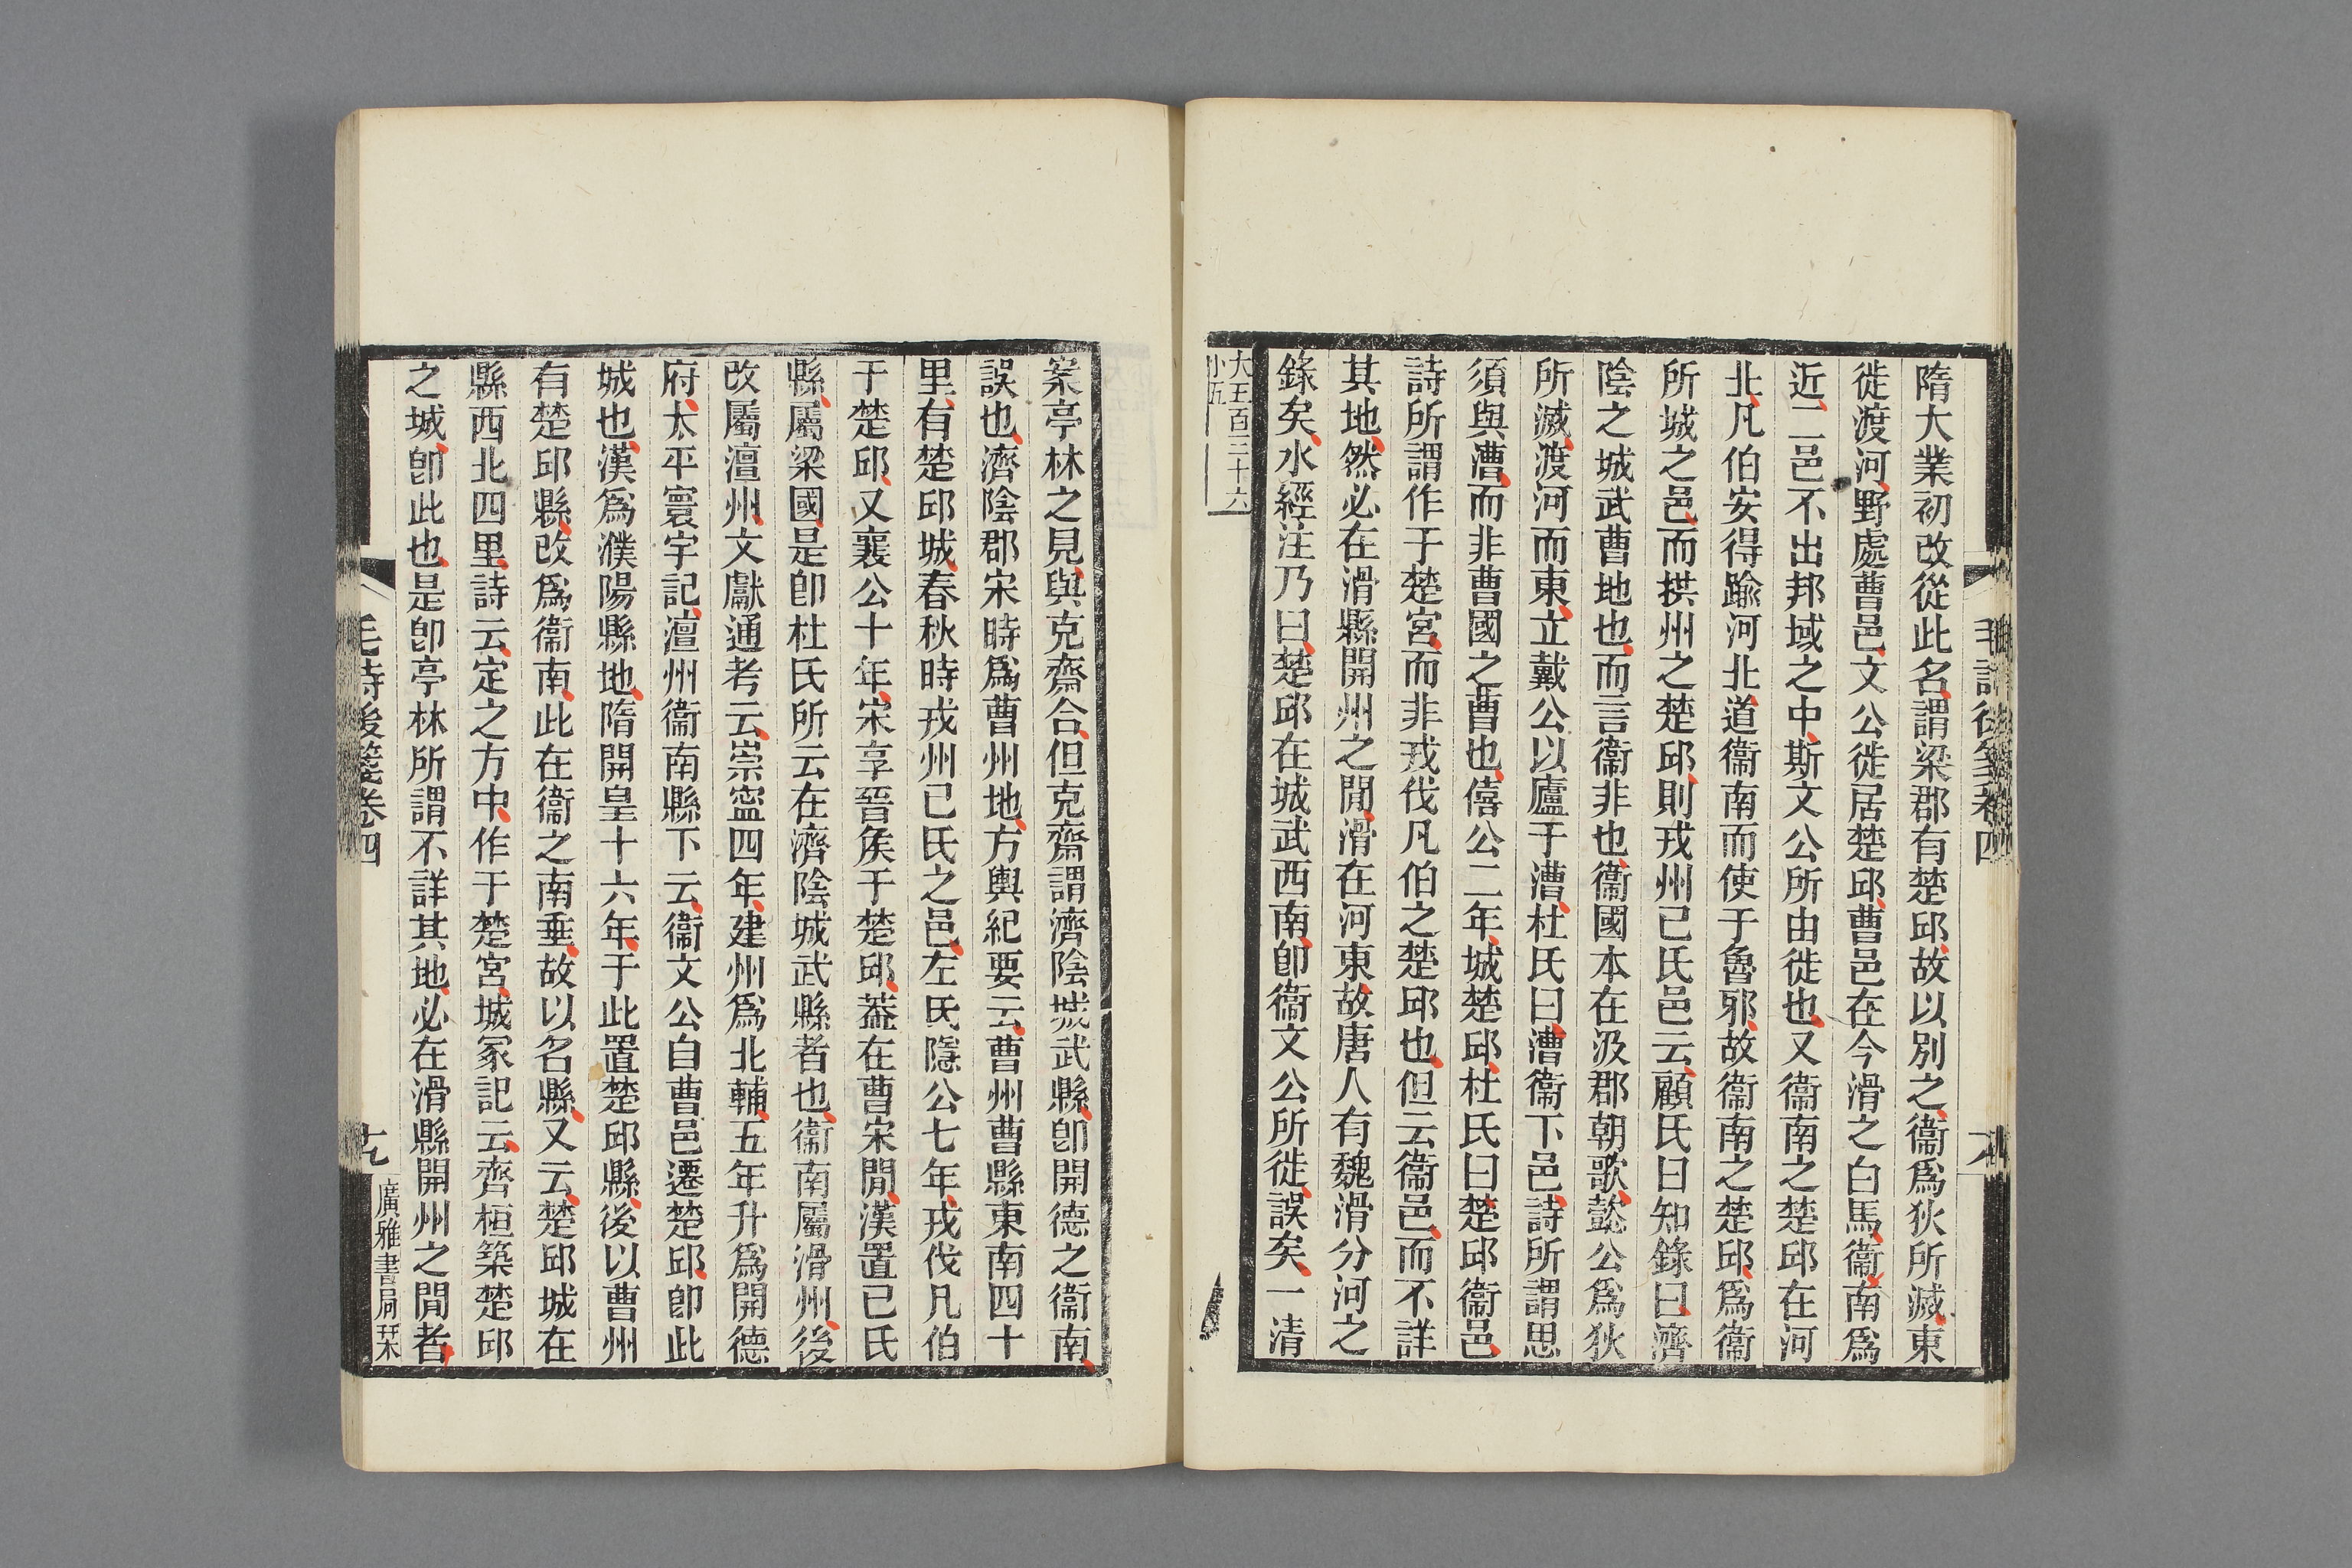 隋大業初改從此名謂梁郡有楚邱故以別之衞爲狄所滅東
徙渡河野處曹邑文公徙居楚邱曹邑在今滑之白馬衞南爲
近二邑不出邦域之中斯文公所由徙也又衞南之楚邱在河
北凡伯安得踰河北道衞南而使于魯邪故衞南之楚邱爲衞
所城之邑而拱州之楚邱則戎州己氏邑云顧氏日知錄曰濟
陰之城武曹地也而言衞非也衞國本在汲郡朝歌懿公爲狄
所滅渡河而東立戴公以廬于漕杜氏曰漕衞下邑詩所謂思
須與漕而非曹國之曹也僖公二年城楚邱杜氏曰楚邱衞邑
詩所謂作于楚宮而非戎伐凡伯之楚邱也但云衞邑而不詳
其地然必在滑縣開州之閒滑在河東故唐人有魏滑分河之
錄矣水經注乃曰楚邱在城武西南卽衞文公所徙誤矣一清
大五百三十六
小五
案亭林之見與克齋合但克齋謂濟陰城武縣卽開德之衞南
誤也濟陰郡宋時爲曹州地方輿紀要云曹州曹縣東南四十
里有楚邱城春秋時戎州己氏之邑左氏隱公七年戎伐凡伯
于楚邱又襄公十年宋享晉矦于楚邱葢在曹宋閒漢置己氏
縣屬梁國是卽杜氏所云在濟陰城武縣者也衞南屬滑州後
改屬澶州文獻通考云崇寍四年建州爲北輔五年升爲開德
府太平寰宇記澶州衞南縣下云衞文公自曹邑遷楚邱卽此
城也漢爲濮陽縣地隋開皇十六年于此置楚邱縣後以曹州
有楚邱縣改爲衞南此在衞之南垂故以名縣又云楚邱城在
縣西北四里詩云定之方中作于楚宮城冢記云齊桓築楚邱
之城卽此也是卽亭林所謂不詳其地必在滑縣開州之閒者
毛詩後箋卷四
廣雅書局栞